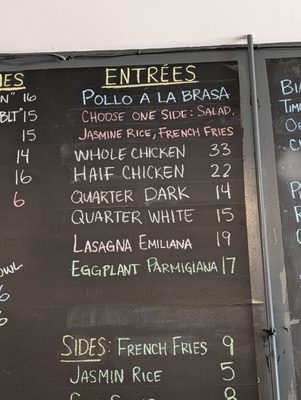 IES
N" 16
BLT" 15
15
14
16
6
OWL
6
6
ENTRÉES
POLLO À LA BRASA
CHOOSE ONE SIDE: SALAD,
JASMINE RICE, FRENCH FRIES
WHOLE CHICKEN 33
HAlF CHICKEN 22
QUARTER DARK 14
QUARTER WHITE 15
LASAGNA EMILIANA 19
EGGPLANT PARMIGIANA 17
SIDES: FRENCH FRIES 9
JASMIN RICE 5